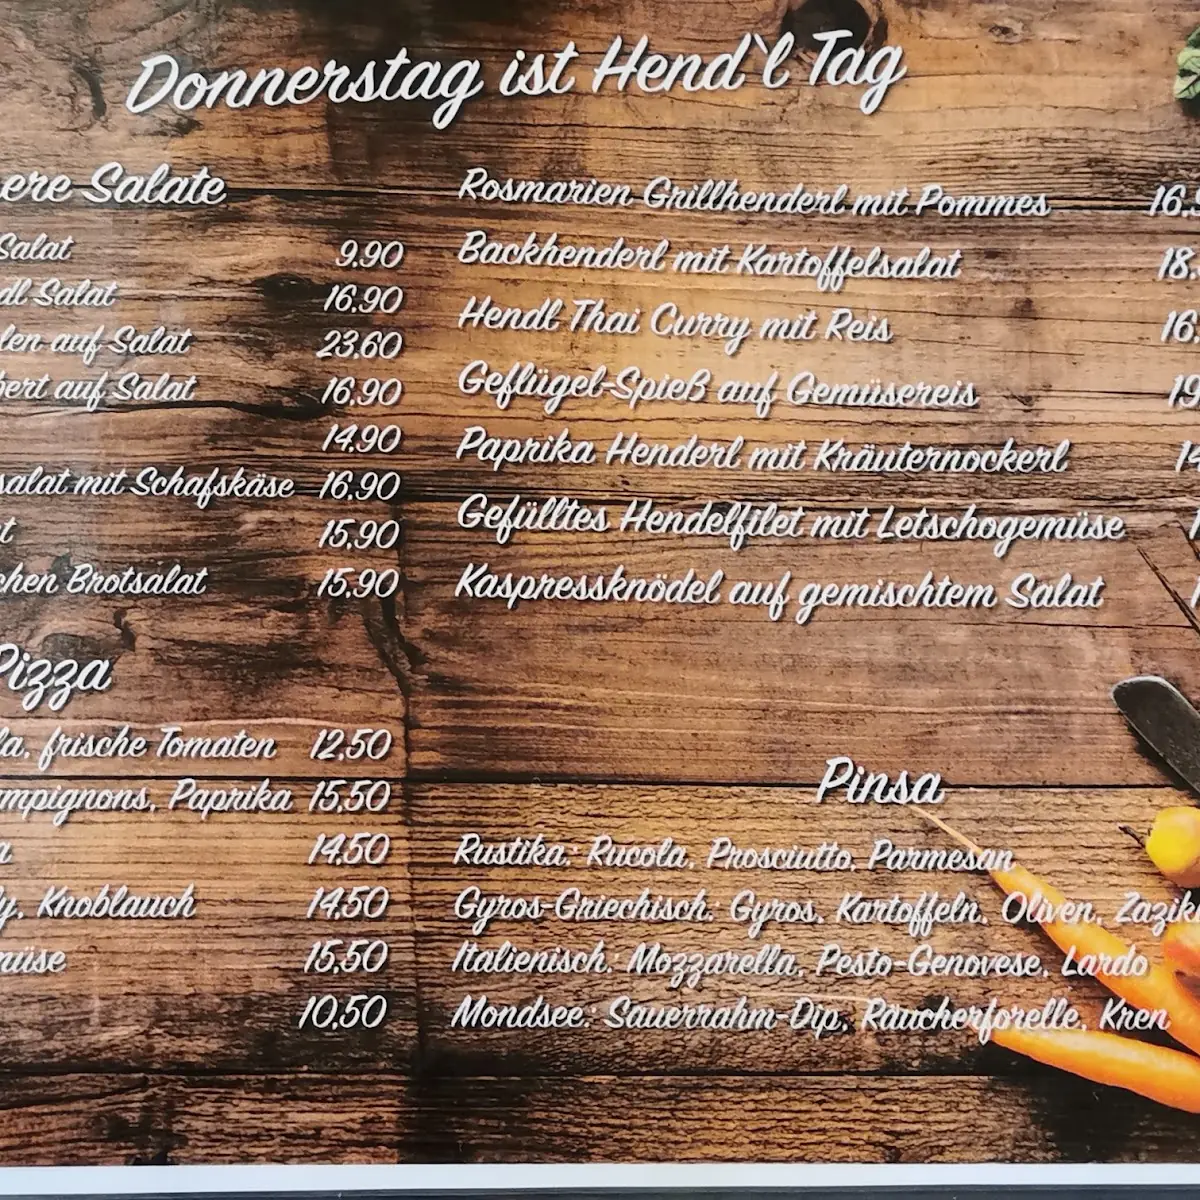 Donnerstag ist Hend`l Tag
ere Salate
Salat 9,90
dl Salat 16,90
len auf Salat 23,60
bert auf Salat 16,90
14,90
salat mit Schafskäse 16,90
t 15,90
chen Brotsalat 15,90
Pizza
la, frische Tomaten 12,50
mpignons, Paprika 15,50
a 14,50
y, Knoblauch 14,50
müse 15,50
10,50
Rosmarien Grillhenderl mit Pommes 16,
Backhenderl mit Kartoffelsalat 18,
Hendl Thai Curry mit Reis 16,
Geflügel-Spieß auf Gemüsereis 19
Paprika Henderl mit Kräuternockerl 14
Gefülltes Hendelfilet mit Letschogemüse 1
Kaspressknödel auf gemischtem Salat 1
Pinsa
Rustika: Rucola, Prosciutto, Parmesan
Gyros-Griechisch: Gyros, Kartoffeln, Oliven, Zazik
Italienisch: Mozzarella, Pesto-Genovese, Lardo
Mondsee: Sauerrahm-Dip, Räucherforelle, Kren